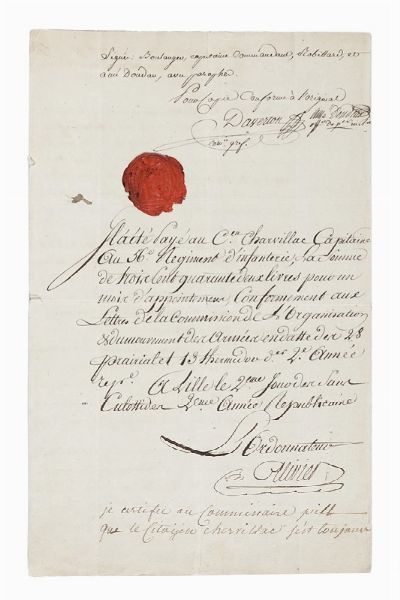 Signé: Boulanger, capitaine Commandant, Robillard, et
amé Doudan, avec paraphe.
Pour Copie Conforme à l'original
Daverton
Il a été payé au C.en Charvillac Capitaine
Au 56e Regiment d'infanterie, La Somme
de trois Cent quarante deux livres pour un
mois d'appointemens Conformement aux
Lettres de la Commission de L'Organisation
& du mouvement des Armées en datte des 28
prairial et 13 thermidor der 2e Année
repne. A Lille le 2eme Jour des Sans
Culottides 2eme Année Republicaine
L'Ordonnateur
Olivier
je certifie au Commissaire
que le Citoyen chervillac s'est toujours